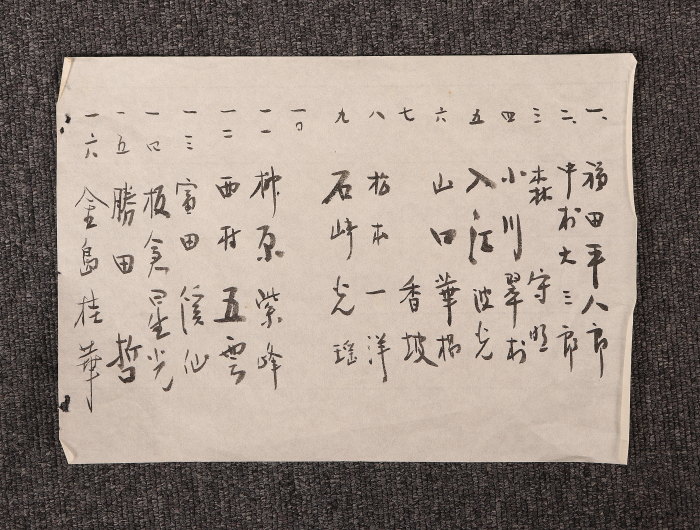 一、福田平八郎
二、中村大三郎
三 森 守明
四 小川翠村
五 入江波光
六 山口華楊
七 香坡
八 松本一洋
九 石崎光瑶
一〇
一一 榊原紫峰
一二 西村五雲
一三 富田溪仙
一四 板倉星光
一五 勝田 哲
一六 金島桂華